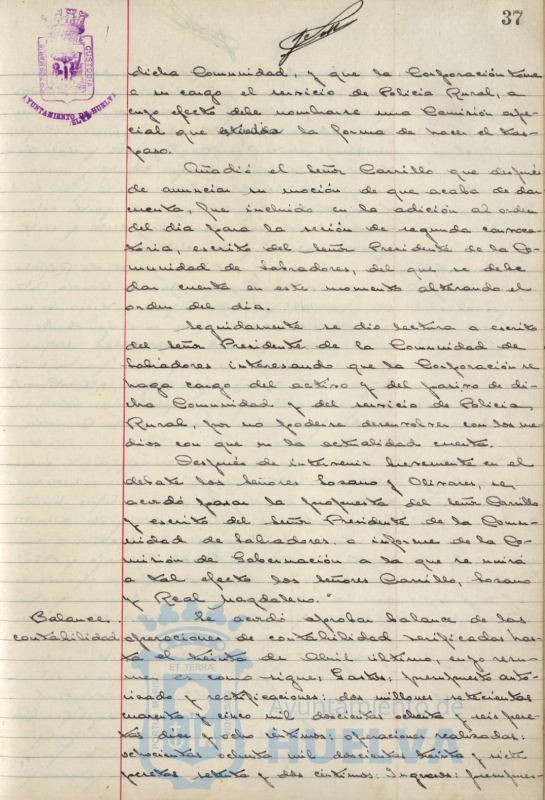 37
AYUNTAMIENTO DE HUELVA
dicha Comunidad, y que la Corporación tome
a su cargo el servicio de Policía Rural, a
cuyo efecto debe nombrarse una Comisión espe-
cial que la forma de hacer el tras-
paso.
Añadió el Señor Carrillo que después
de anunciar su moción de que acaba de dar
cuenta, fue incluido en la adición al orden
del día para la sesión de segunda convoca-
toria, escrito del Señor Presidente de la Co-
munidad de Labradores, del que se debe
dar cuenta en este momento alterando el
orden del día.
Seguidamente se dio lectura a escrito
del Señor Presidente de la Comunidad de
Labradores interesando que la Corporación se
haga cargo del activo y del pasivo de di-
cha Comunidad y del servicio de Policía
Rural, por no poderse desenvolver con los me-
dios con que en la actualidad cuenta.
Después de intervenir brevemente en el
debate los Señores Lozano y Olivares, se
acordó pasar la propuesta del Señor Carrillo
y escrito del Señor Presidente de la Comu-
nidad de Labradores, a informe de la Co-
misión de Gobernación a la que se unirá
a tal efecto los Señores Carrillo, Lozano
y Real Magdaleno."
Balance. Se acordó aprobar balance de las
contabilidad operaciones de contabilidad verificadas has-
ta el treinta de Abril último, cuyo resu-
men es como sigue: Gastos: presupuesto auto-
rizado y rectificaciones: dos millones setecientas
cuarenta y cinco mil doscientas ochenta y seis pese-
tas diez y ocho céntimos: operaciones realizadas:
ochocientas ochenta mil doscientas treinta y siete
pesetas setenta y dos céntimos: Ingresos: presupues-
ET TERRAE
Ayuntamiento de
HUELVA